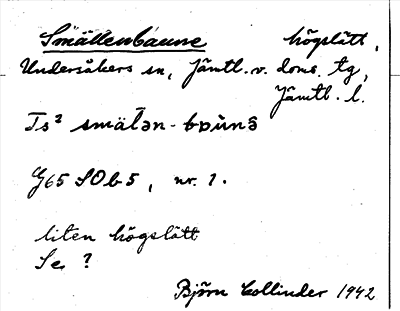 Smällenbaune högslätt,
Undersåkers sn, Jämtl. v. doms. tg,
Jämtl. l.
Ts² smälən-bɒùnə̂
G65 SOb5, nr. 1.
liten högslätt
Se ?
Björn Collinder 1942